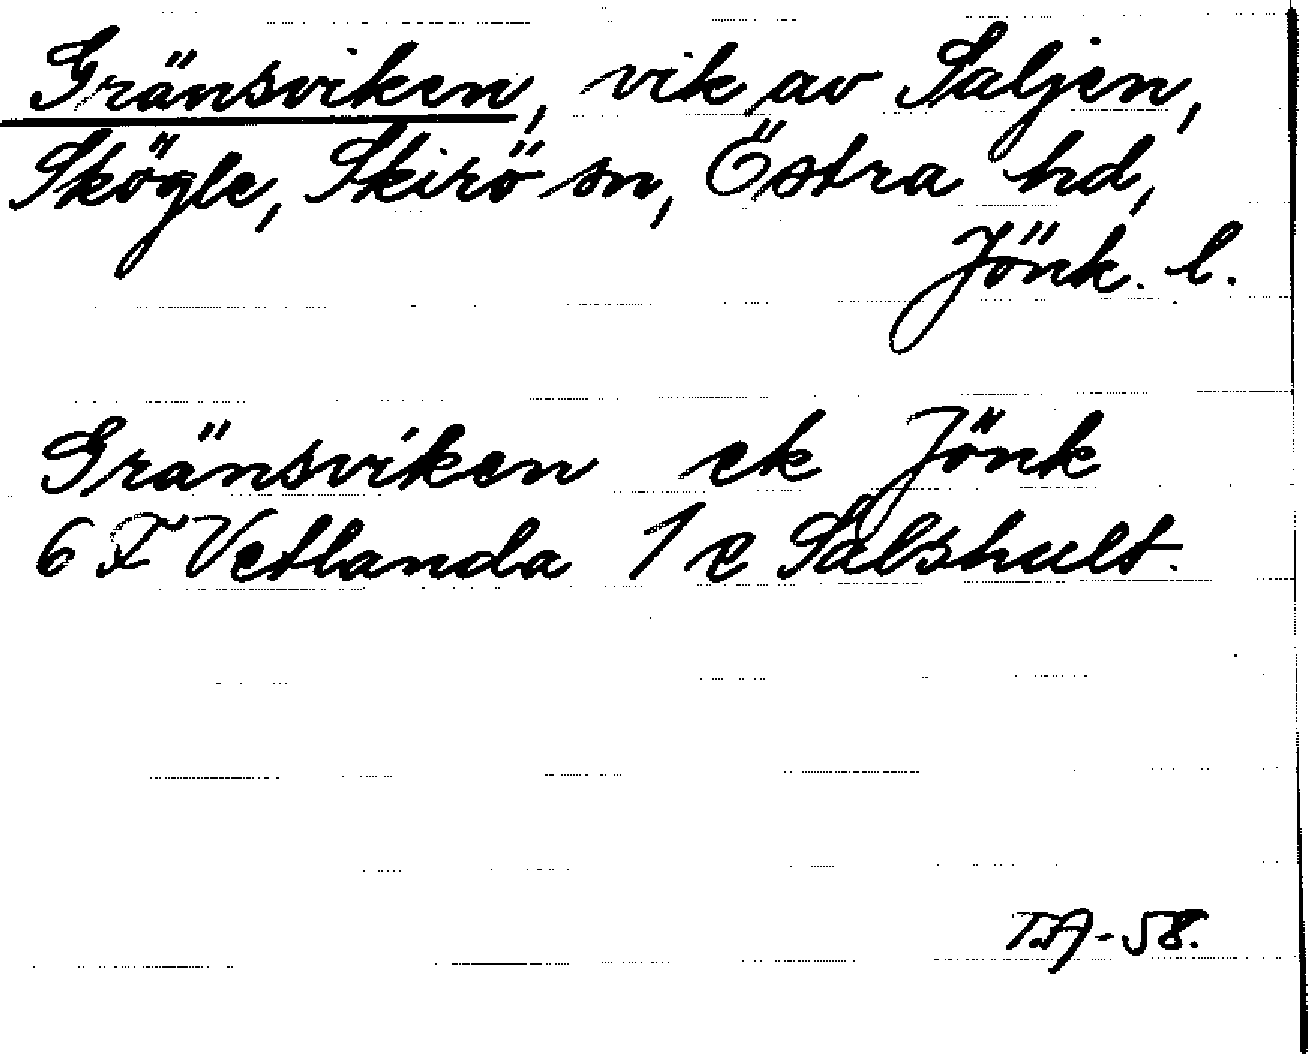 Gränsviken, vik av Saljen,
Skögle, Skirö sn, Östra hd,
Jönk. l.
Gränsviken ek Jönk
6 F Vetlanda 1 c Sälshult.
-58.